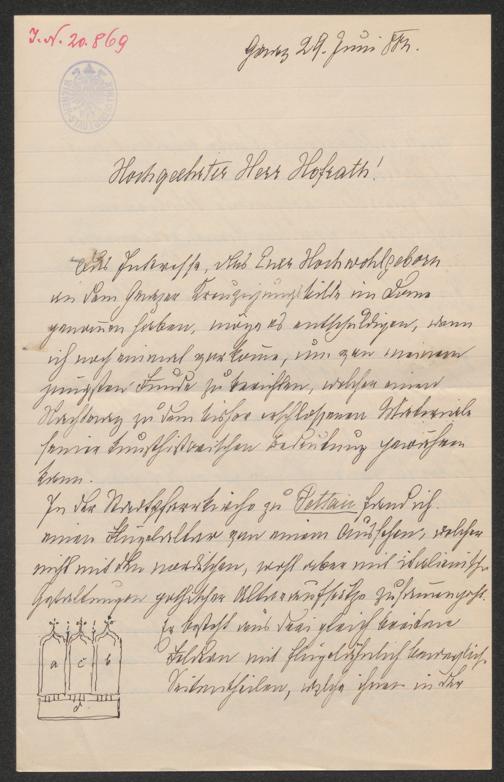 I.N. 20.869
Graz 29. Juni 882.
Hochgeehrter Herr Hofrath!
Das Interesse, das Euer Hochwohlgeborn
an dem Grazer Kreuzigungsbilde im Dome
genommen haben, möge es entschuldigen, wenn
ich noch einmal vorkome, um von meinem
jüngsten Funde zu berichten, welcher einen
Nachtrag zu dem bisher erschlossenen Materiale
seiner kunsthistorischen Bedeutung gewähren
kann.
In der Stadtpfarrkirche zu Pettau fand ich
einen Flügelaltar von einem Aussehen, welcher
nicht mit den nordischen, wohl aber mit italienischen
Gestaltungen gothischer Altaraufsätze zusammengeht.
Er besteht aus drei gleich breiten
Feldern mit flügelähnlich beweglich.
Seitentheilen, welche ihnen in der
a c b
d